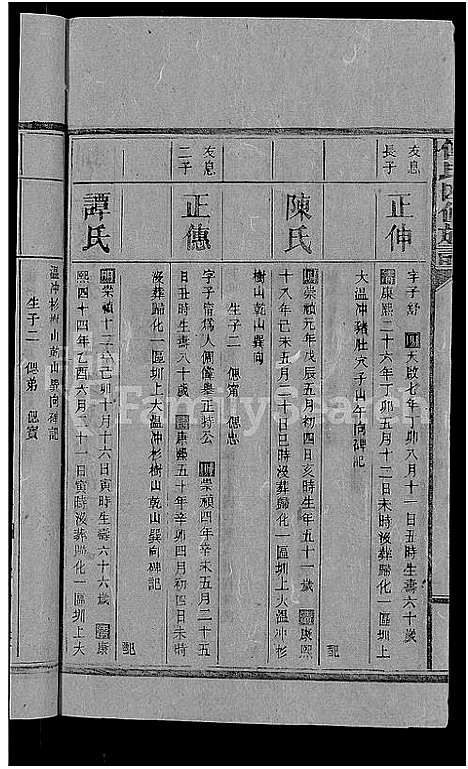 友息
長子
正伸
字子舒 明天啟七年丁卯八月十一日丑時生壽六十歲
清康熙二十六年丁卯五月十二日未時沒葬歸化一區圳上
大溫冲豬肚穴子山午向碑記
陳氏
明崇禎元年戊辰五月初四日亥時生年五十一歲 清康熙
十八年己未五月二十日巳時沒葬歸化一區圳上大溫冲杉
樹山乾山巽向 記
生子二 偲甯 偲忠
友息
二子
正傯
字子脩為人倜儻舉正特公 明崇禎四年辛未五月二十五
日丑時生壽八十歲 清康熙五十年辛卯四月初四日未時
沒葬歸化一區圳上大溫冲杉樹山乾山巽向碑記
譚氏
明崇禎十二年己卯十月十六日寅時生壽六十六歲 清康
熙四十四年乙酉六月十一日寅時沒葬歸化一區圳上大
溫冲杉樹山乾山巽向碑記
生子二 偲弟 偲賓
FamilySearch